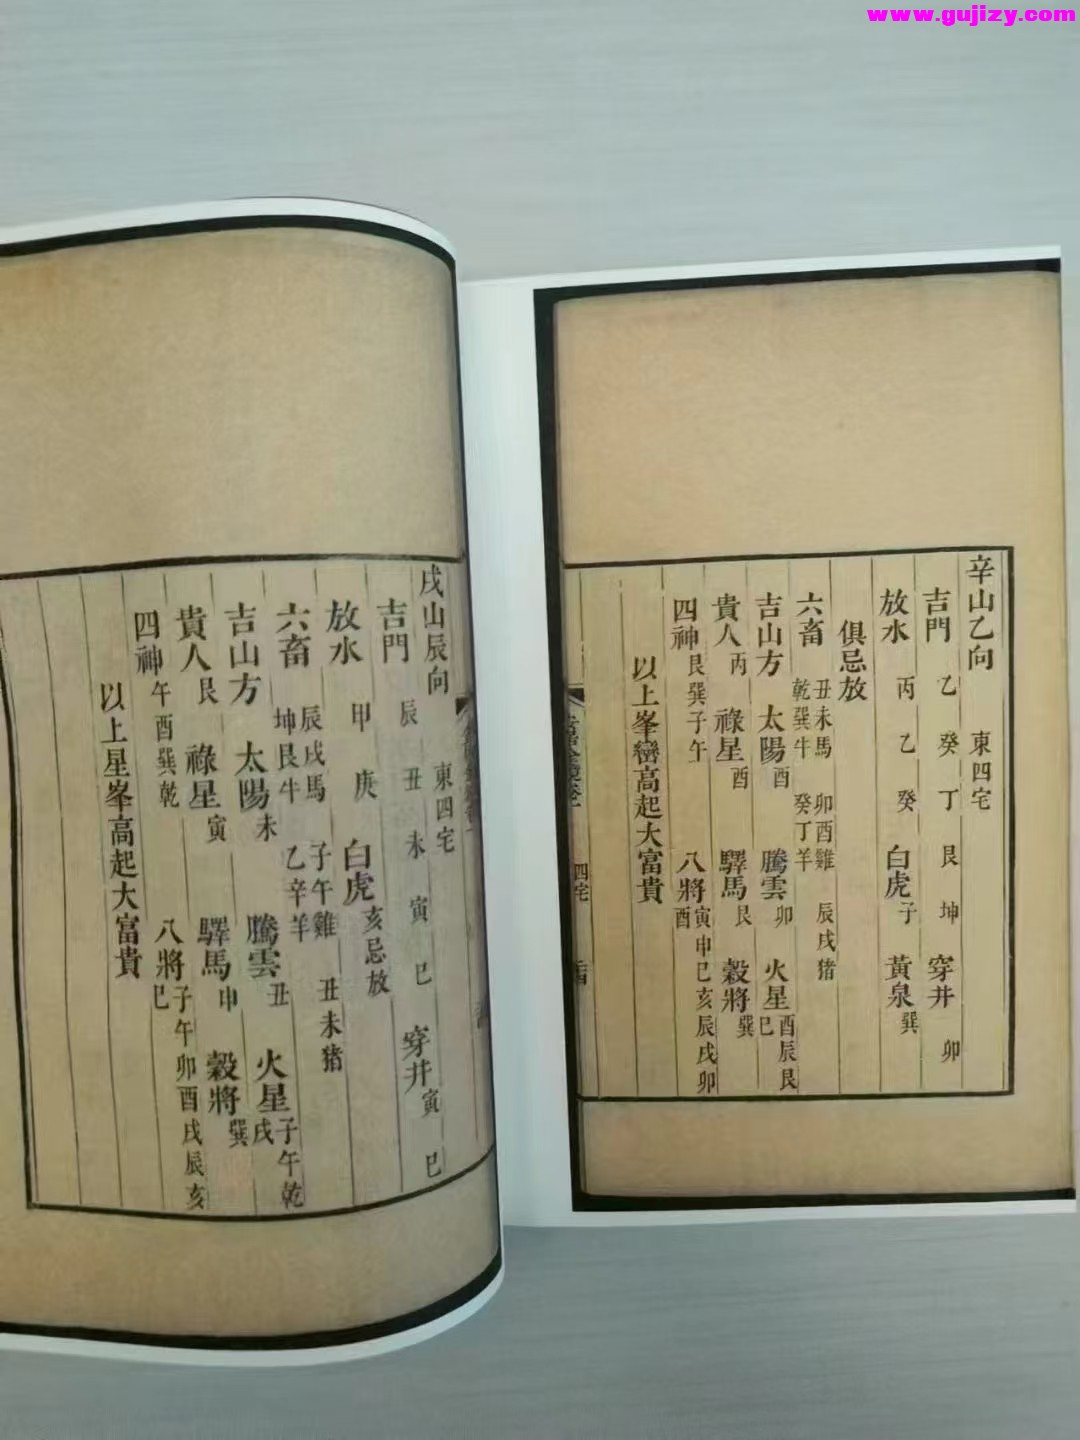 www.gujizy.com
辛山乙向 東四宅
吉門 乙癸丁艮坤 穿井 卯
放水 丙乙癸 白虎子 黃泉巽
俱忌放
六畜 丑未馬 乾巽牛 卯酉雞 癸丁羊 辰戌猪
吉山方 太陽酉 騰雲卯 火星酉辰艮巳
貴人丙 祿星酉 驛馬艮 穀將巽
四神艮巽子午 八將寅申巳亥辰戌卯酉
以上峯巒高起大富貴
四宅
戌山辰向 東四宅
吉門 辰丑未寅巳 穿井寅巳
放水 甲庚 白虎亥忌放
六畜 辰戌馬 坤艮牛 子午雞 乙辛羊 丑未猪
吉山方 太陽未 騰雲丑 火星子午乾戌
貴人艮 祿星寅 驛馬申 穀將巽
四神午酉巽乾 八將子午卯酉戌辰亥巳
以上星峯高起大富貴